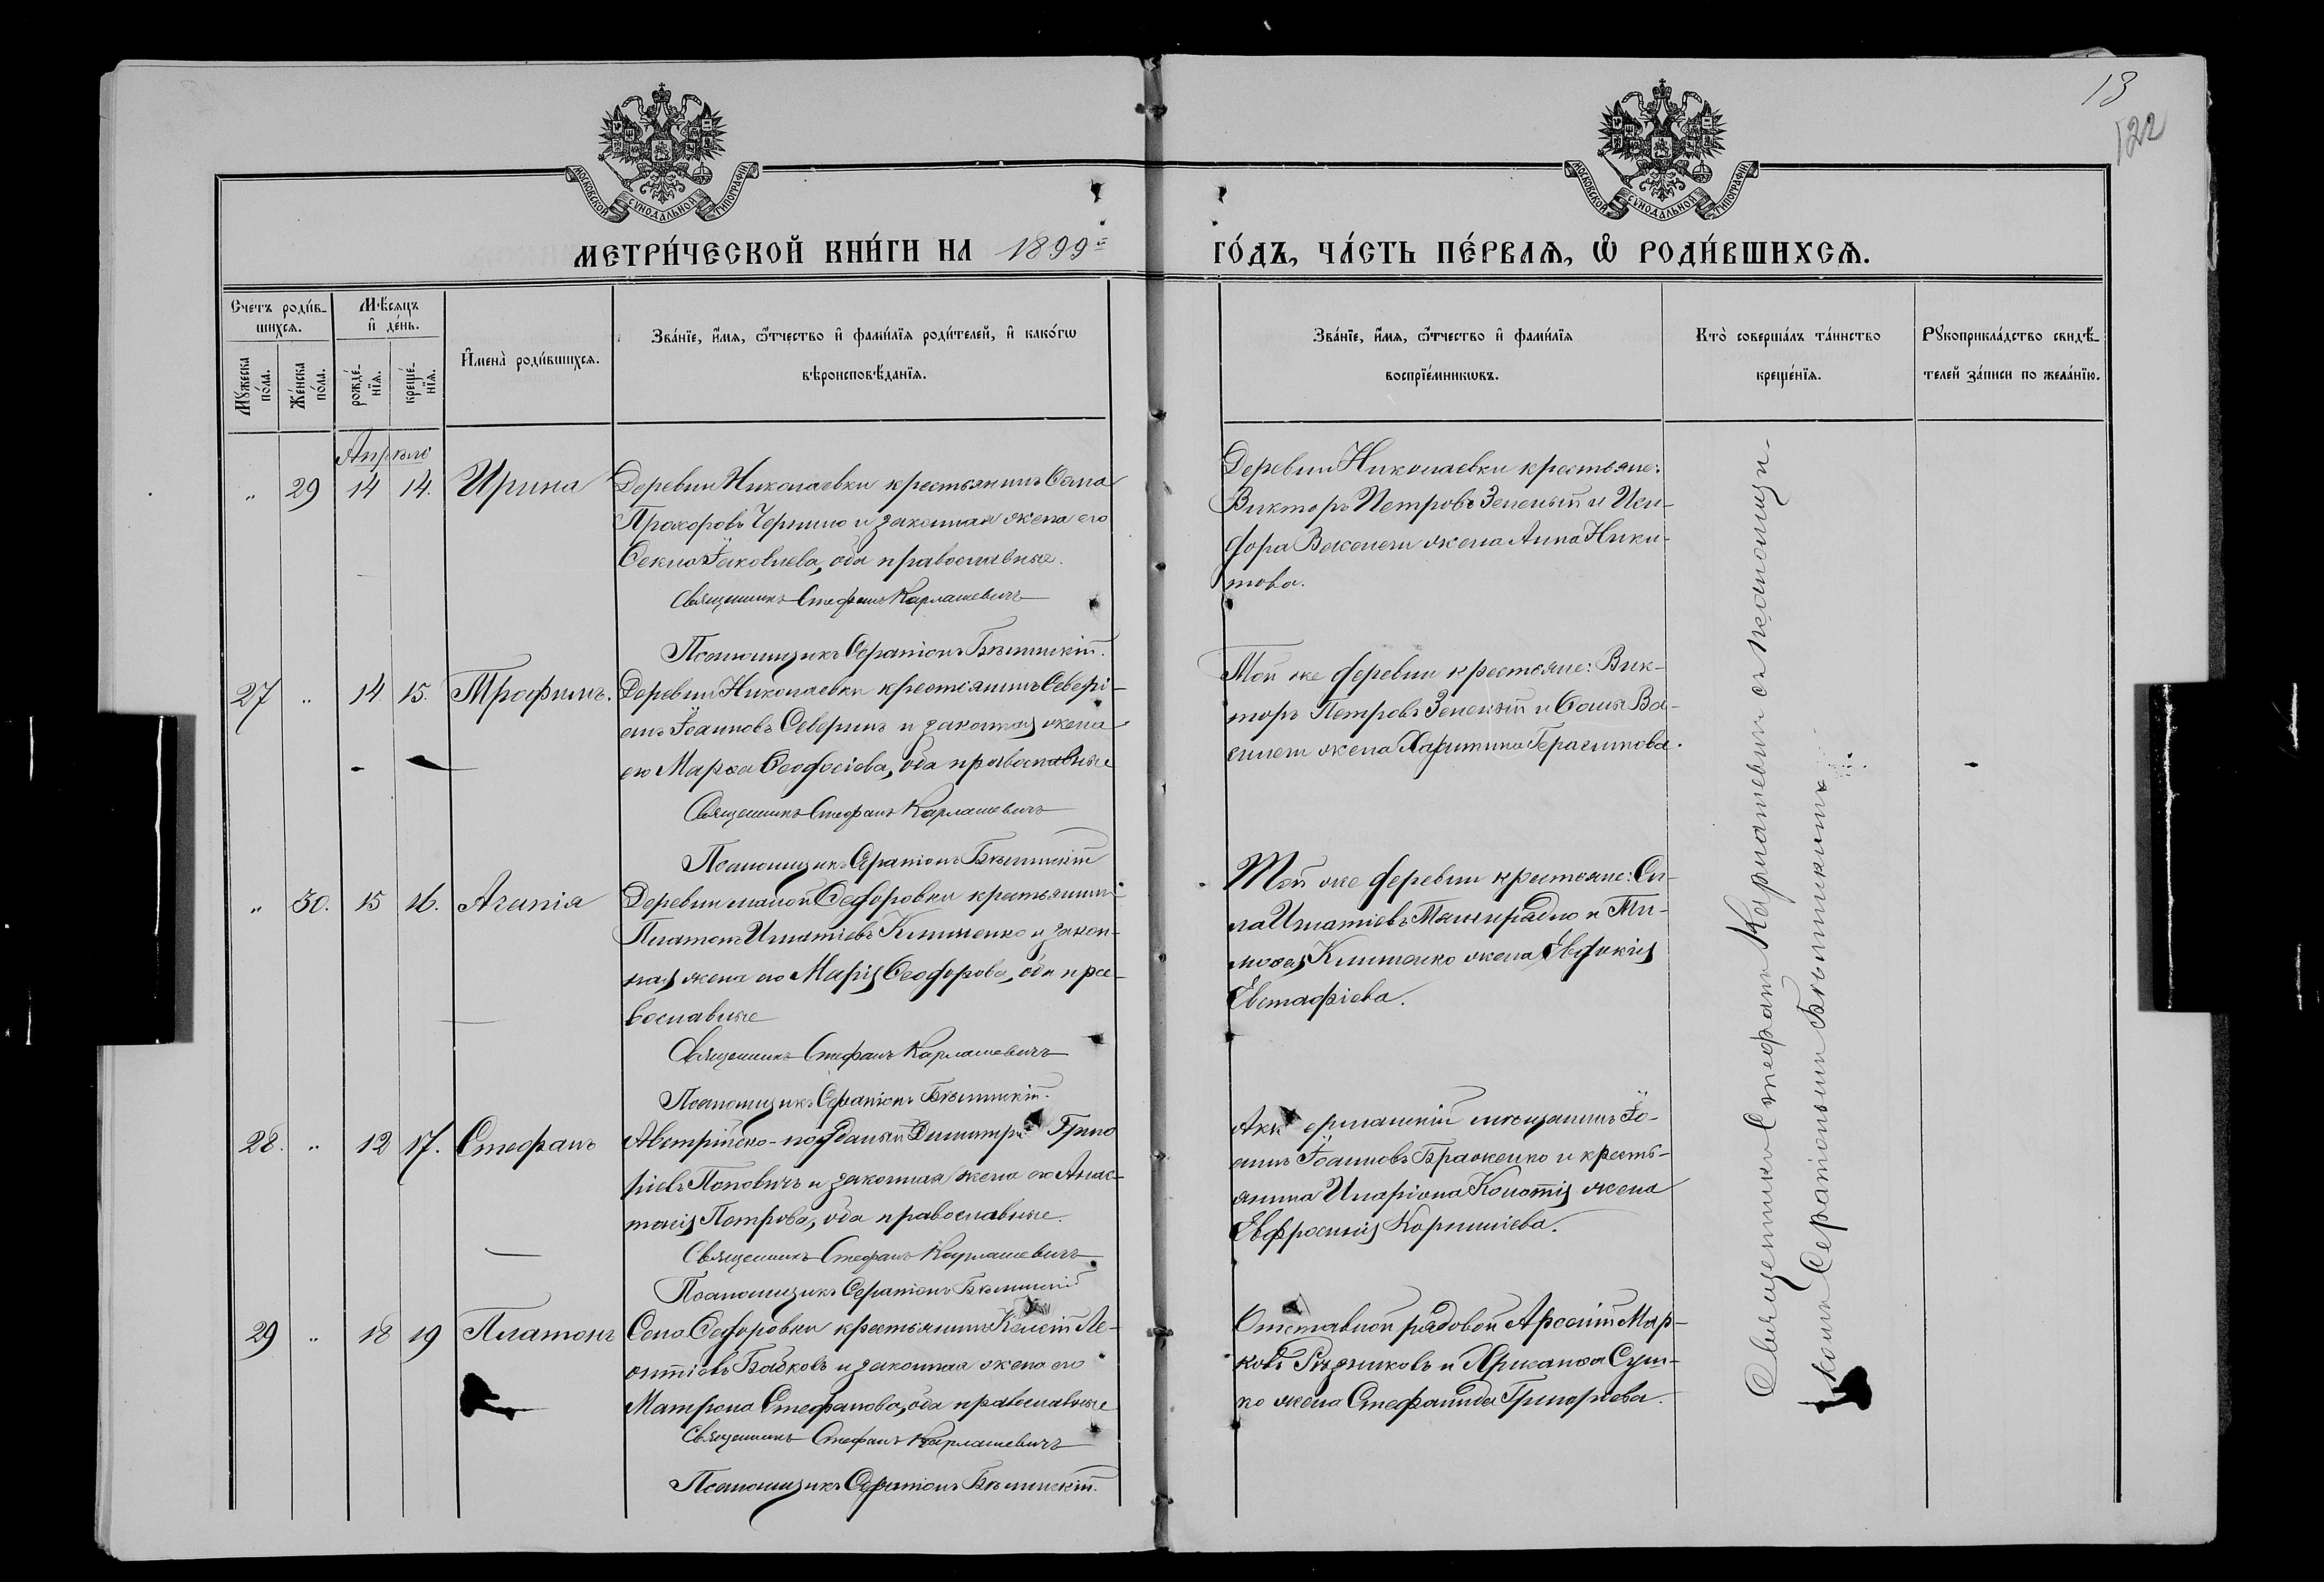 13
122
МОСКОВСКОЙ СѴНОДАЛЬНОЙ ТИПОГРАФІИ
МОСКОВСКОЙ СѴНОДАЛЬНОЙ ТИПОГРАФІИ
МЕТРИ́ЧЕСКОЙ КНИ́ГИ НА 1899й ГО́ДЪ, ЧА́СТЬ ПЕ́РВАѦ, Ѽ РОДИ́ВШИХСѦ.
Счетъ роди́в-
шихсѧ.
Мѣ́сѧцъ
и҆ де́нь.
Мꙋ́жеска по́ла.
Же́нска по́ла.
рожде́-
нїѧ.
креще́-
нїѧ.
И҆мена̀ роди́вшихсѧ.
Зва́нїе, и҆́мѧ, ѻ҆́тчество и҆ фами́лїѧ роди́телей, и҆ како́гѡ
вѣроисповѣ́данїѧ.
Зва́нїе, и҆́мѧ, ѻ҆́тчество и҆ фами́лїѧ
воспрїе́мникѡвъ.
Кто̀ соверша́лъ та́инство
креще́нїѧ.
Рꙋкоприкла́дство свидѣ́-
телей за́писи по жела́нїю.
Апрѣль
„ 29 14 14. Ирина
Деревни Николаевки крестьянинъ Ѳома
Прохоровъ и законная жена его
Ѳекла Іаковлева, оба православные.
Священникъ Стефанъ Карлашевичъ
Псаломщикъ Серапіонъ Бѣлинскій.
Деревни Николаевки крестьяне:
Викторъ Петровъ Зеленый и Ники-
фора жена Анна Ники-
това.
27 „ 14. 15. Трофимъ.
Деревни Николаевки крестьянинъ Севері-
анъ Іоанновъ Северинъ и законная жена
его Марѳа Ѳеодосіева, оба православные
Священникъ Стефанъ Карлашевичъ
Псаломщикъ Серапіонъ Бѣлинскій
Той же деревни крестьяне: Вик-
торъ Петровъ Зеленый и Ѳомы Ва-
жена Харитина Герасимова.
„ 30. 15 16. Агапія
Деревни малой Ѳедоровки крестьянинъ
Платонъ Игнатіевъ Клименко и закон-
ная жена его Марія Ѳеодорова, оба пра-
вославные
Священникъ Стефанъ Карлашевичъ
Псаломщикъ Серапіонъ Бѣлинскій.
Той же деревни крестьяне: Си-
ла Игнатіевъ и Ти-
моѳея Клименко жена Евдокія
Евстафіева.
28. „ 12 17. Стефанъ
Австрійско-подданый Димитрій Григо
ріевъ Поповичъ и законная жена его Анас-
тасія Петрова, оба православные.
Священникъ Стефанъ Карлашевичъ
Псаломщикъ Серапіонъ Бѣлинскій
Аккерманскій мѣщанинъ Іо-
аннъ Іоанновъ Браженко и кресть-
янина Иларіона жена
Евфросинія Корниліева.
29 „ 18 19 Платонъ
Села Ѳедоровки крестьянинъ Ле-
онтіевъ Бабковъ и законная жена его
Матрона Стефанова, оба православные
Священникъ Стефанъ Карлашевичъ
Псаломщикъ Серапіонъ Бѣлинскій.
Отставной рядовой Арсеній Мар-
ковъ Рѣзниковъ и Хрисанѳа Суш-
ко жена Стефанида Григоріева.
Священникъ Стефанъ Карлашевичъ съ псаломщи-
комъ Серапіономъ Бѣлинскимъ